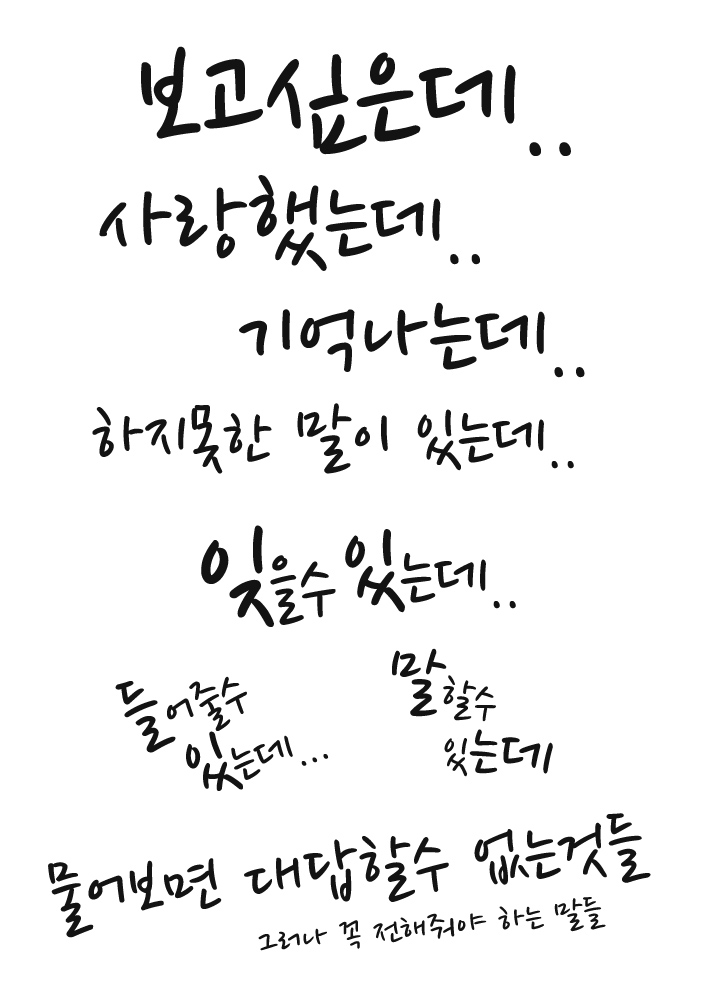 보고싶은데..
사랑했는데..
기억나는데..
하지못한 말이 있는데..
잊을수 있는데..
들어줄수
있는데...
말할수
있는데
물어보면 대답할수 없는것들
그러나 꼭 전해줘야 하는 말들